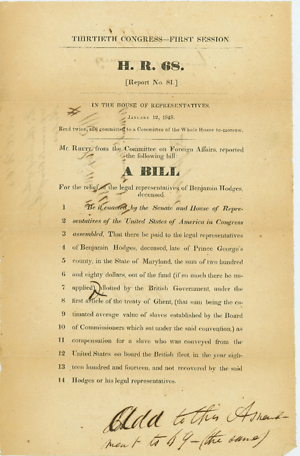 THIRTIETH CONGRESS—FIRST SESSION.
H. R. 68.
[Report No. 81.]
IN THE HOUSE OF REPRESENTATIVES.
JANUARY 19, 1848.
Read twice, and committed to a Committee of the Whole House to-morrow.
Mr. RHETT, from the Committee on Foreign Affairs, reported
the following bill:
A BILL
For the relief of the legal representatives of Benjamin Hodges,
deceased.
1 Be it enacted by the Senate and House of Repre-
2 sentatives of the United States of America in Congress
3 assembled, That there be paid to the legal representatives
4 of Benjamin Hodges, deceased, late of Prince George's
5 county, in the State of Maryland, the sum of two hundred
6 and eighty dollars, out of the fund (if so much there be un-
7 applied) allotted by the British Government, under the
8 first article of the treaty of Ghent, (that sum being the es-
9 timated average value of slaves established by the Board
10 of Commissioners which sat under said convention,) as
11 compensation for a slave who was conveyed from the
12 United States on board the British fleet, in the year eigh-
13 teen hundred and fourteen, and not recovered by the said
14 Hodges or his legal representatives.
Add to this Amend-
ment to 49 - (the same)